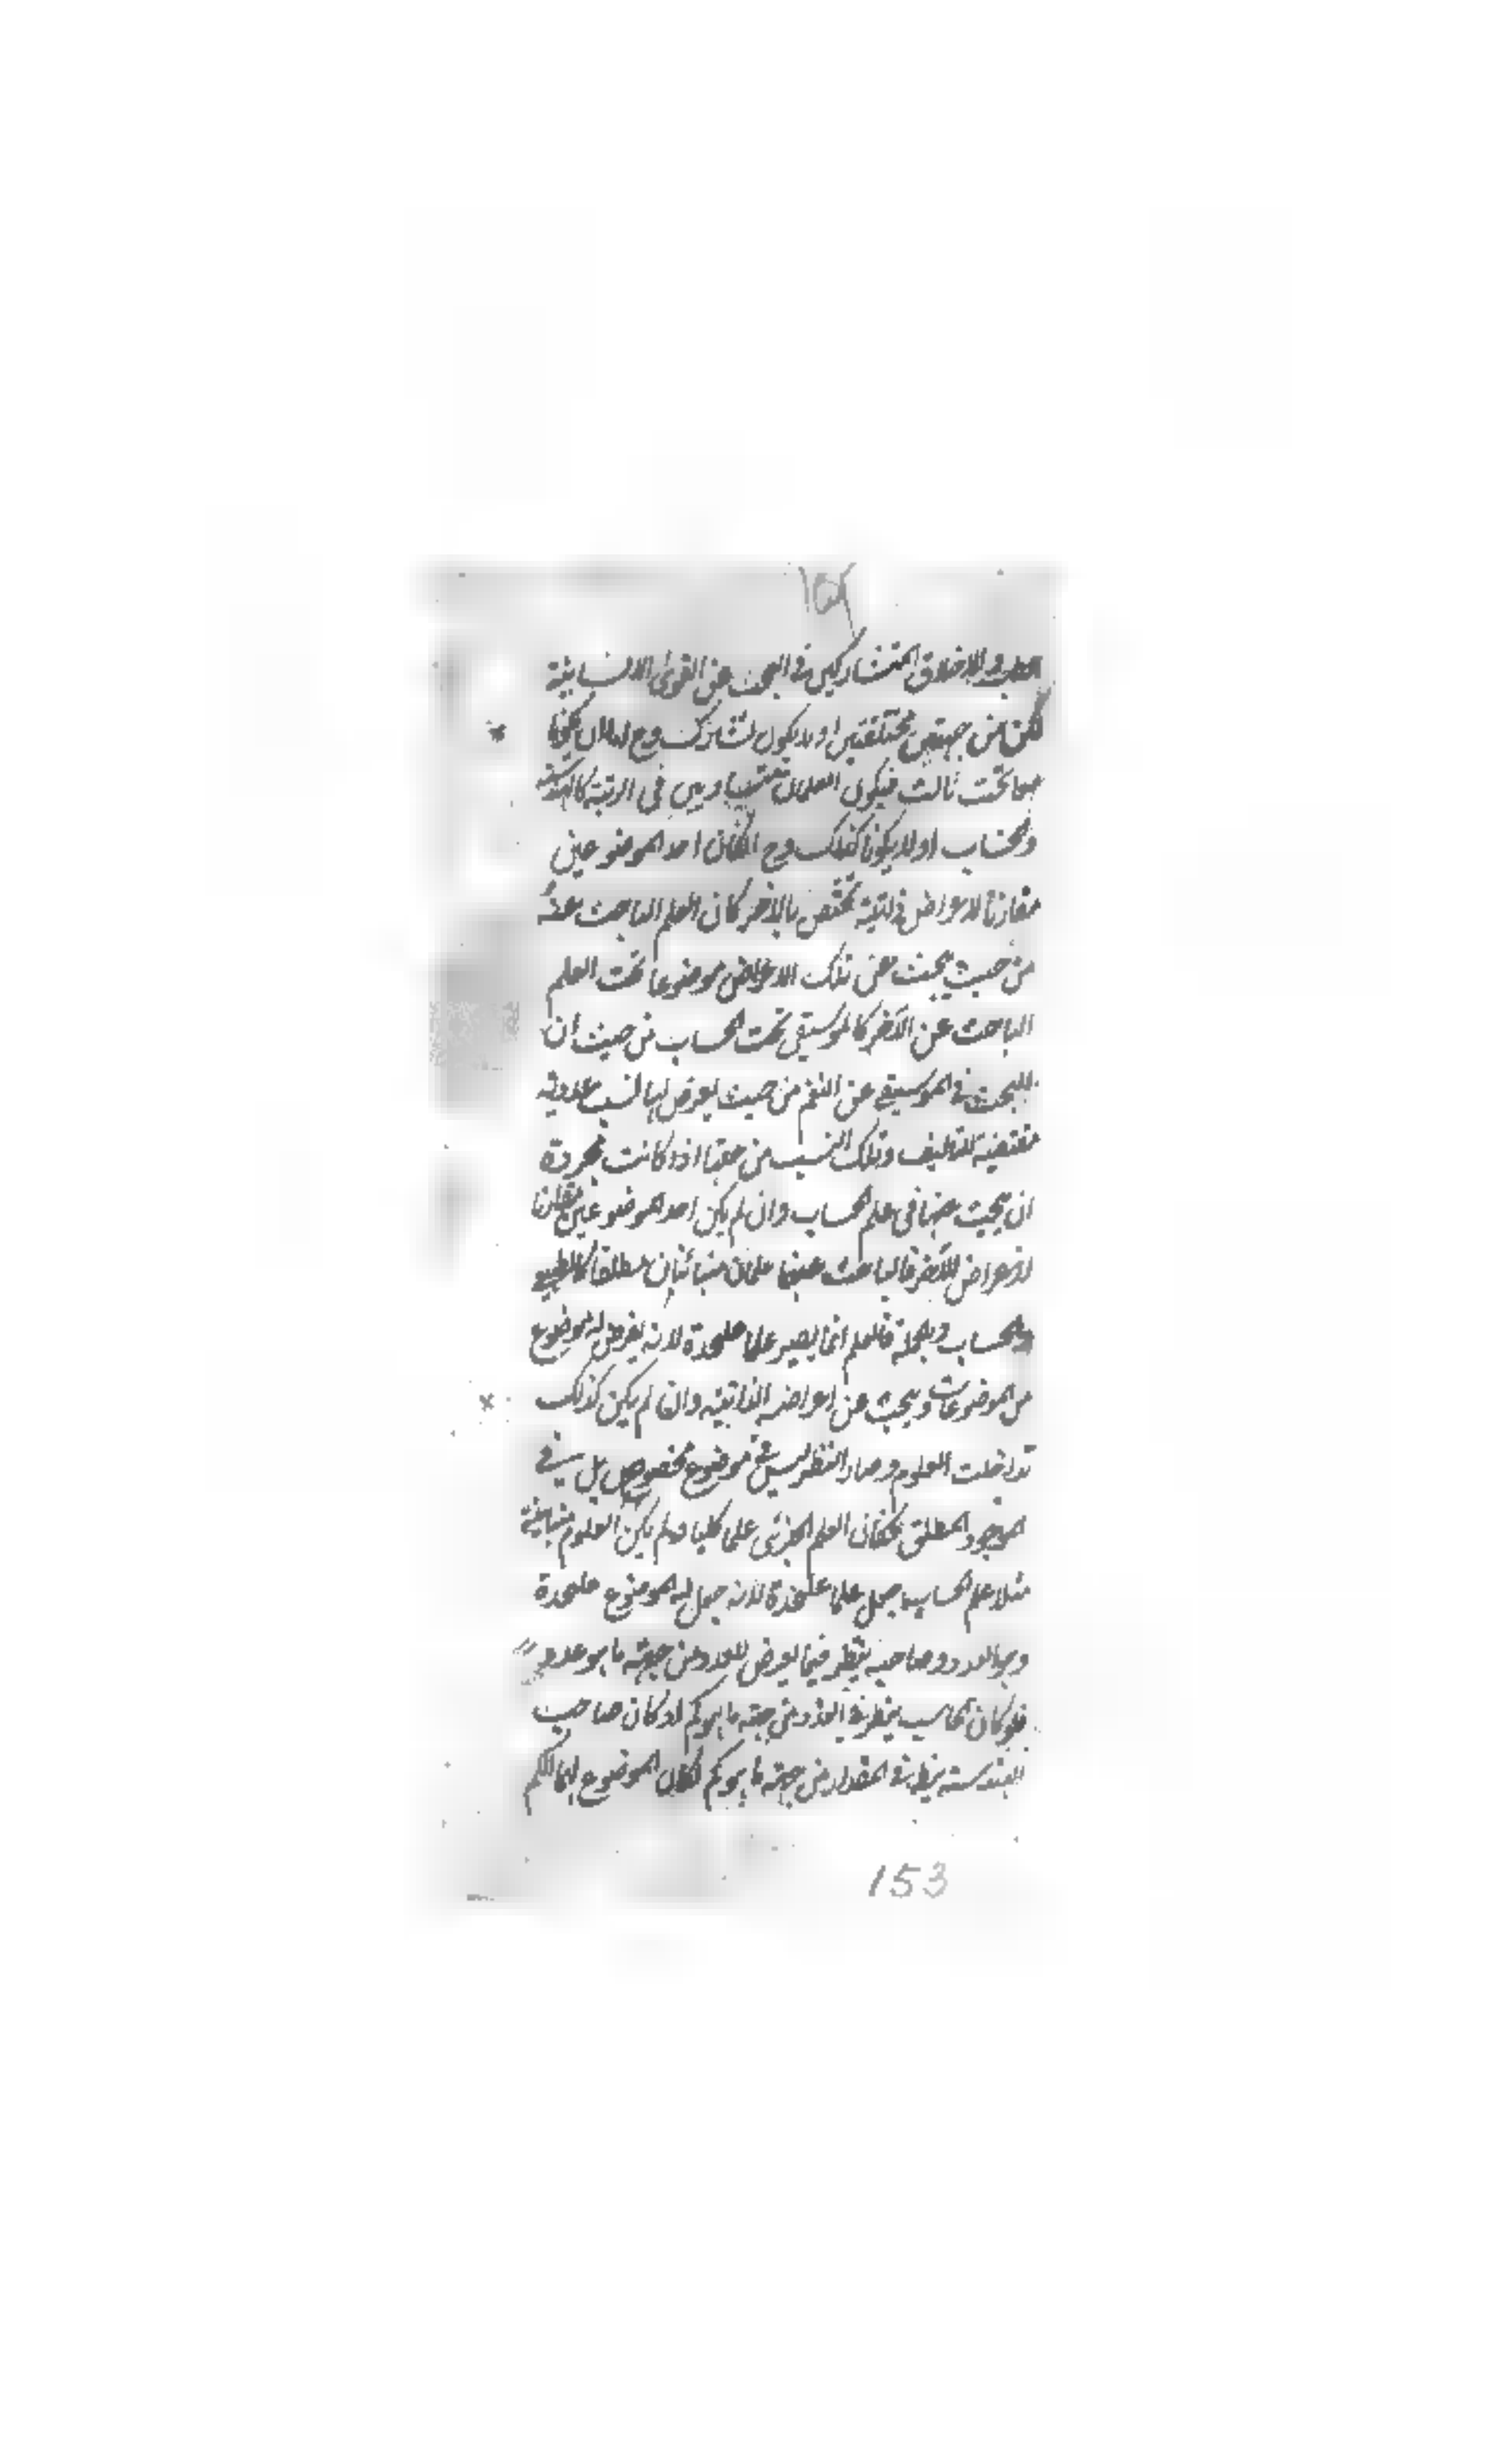 الطب والاخلاق المتشاركين فى البحث عن القوى الانسانية
لكن من جهتين مختلفتين اولا يكون تشارك وح اما ان يكونا
معا تحت ثالث فيكون العلمان متساويين فى الرتبة كالهندسة
والحساب اولا يكونا كذلك وح ان كان احد الموضوعين
مقارنا لاعراض ذاتية تختص بالاخر كان العلم الباحث عنه
من حيث يبحث عن تلك الاعراض موضوعا تحت العلم
الباحث عن الآخر كالموسيقى تحت الحساب من حيث ان
البحث فى الموسيقى عن النغم من حيث يعرض لها نسب عددية
مقتضية للتاليف وتلك النسب من حقها اذا كانت مجردة
ان يبحث عنها فى علم الحساب وان لم يكن احد الموضوعين مقارنا
لاعراض الآخر فالباحث عنهما علمان متباينان مطلقا كالطبيعى
والحساب وبالجملة فالعلم انما يصير علما علىحدة لانه يفرض له موضوع
من الموضوعات ويبحث عن اعراضه الذاتية وان لم يكن كذلك
تداخلت العلوم وصار النظر ليس فى موضوع مخصوص بل فى
الموجود المطلق فكان العلم الجزئى علما كليا ولم يكن العلوم متباينة
مثلا علم الحساب جعل علما علىحدة لانه جعل له موضوع علىحدة
وهو العدد وصاحبه ينظر فيما يعرض للعدد من جهة ما هو عدد
فلو كان الحاسب ينظر فى العدد من جهة ما هو كم او كان صاحب
الهندسة ينظر فى المقدار من جهة ما هو كم لكان الموضوع لهما الكم
153